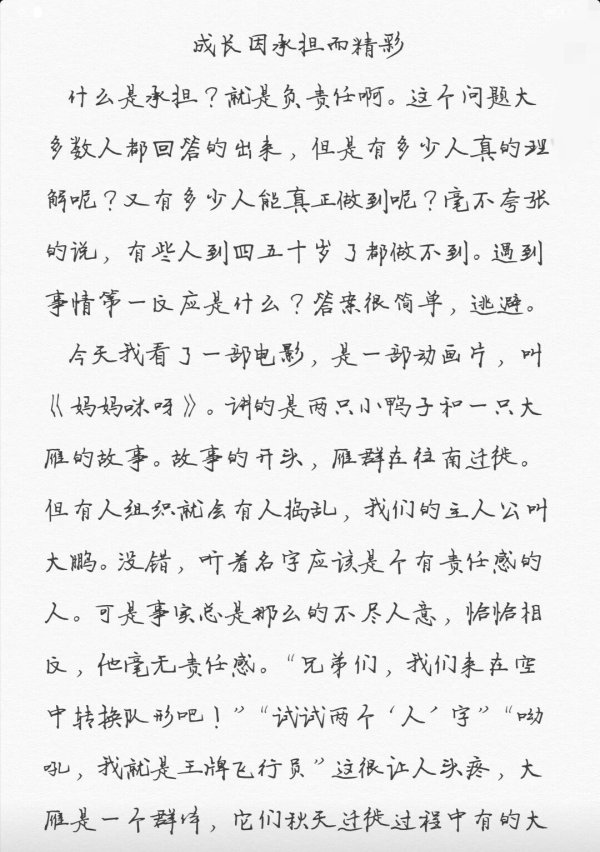 成长因承担而精彩
什么是承担？就是负责任啊。这个问题大
多数人都回答的出来，但是有多少人真的理
解呢？又有多少人能真正做到呢？毫不夸张
的说，有些人到四五十岁了都做不到。遇到
事情第一反应是什么？答案很简单，逃避。
今天我看了一部电影，是一部动画片，叫
《妈妈咪呀》。讲的是两只小鸭子和一只大
雁的故事。故事的开头，雁群在往南迁徙。
但有人组织就会有人捣乱，我们的主人公叫
大鹏。没错，听着名字应该是个有责任感的
人。可是事实总是那么的不尽人意，恰恰相
反，他毫无责任感。“兄弟们，我们来在空
中转换队形吧！”“试试两个‘人’字”“呦
吼，我就是王牌飞行员”这很让人头疼，大
雁是一个群体，它们秋天迁徙过程中有的大